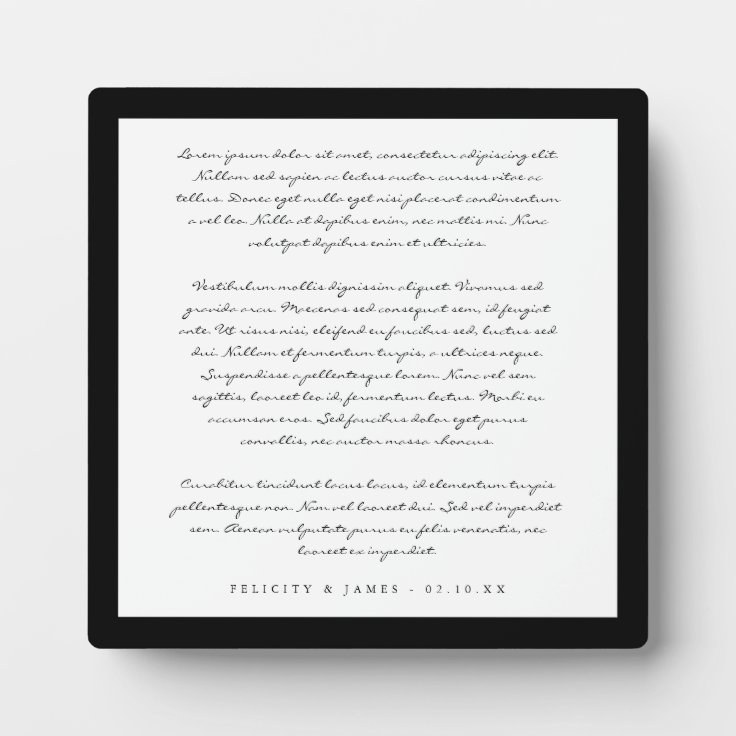 Lorem ipsum dolor sit amet, consectetur adipiscing elit.
Nullam sed sapien ac lectus auctor cursus vitae ac
tellus. Donec eget nulla eget nisi placerat condimentum
a vel leo. Nulla at dapibus enim, nec mattis mi. Nunc
volutpat dapibus enim et ultricies.
Vestibulum mollis dignissim aliquet. Vivamus sed
gravida arcu. Maecenas sed consequat sem, id feugiat
ante. Ut risus nisi, eleifend eu faucibus sed, luctus sed
dui. Nullam et fermentum turpis, a ultrices neque.
Suspendisse a pellentesque lorem. Nunc vel sem
sagittis, laoreet leo id, fermentum lectus. Morbi eu
accumsan eros. Sed faucibus dolor eget purus
convallis, nec auctor massa rhoncus.
Curabitur tincidunt lacus lacus, id elementum turpis
pellentesque non. Nam vel laoreet dui. Sed vel imperdiet
sem. Aenean vulputate purus eu felis venenatis, nec
laoreet ex imperdiet.
FELICITY & JAMES - 02.10.XX